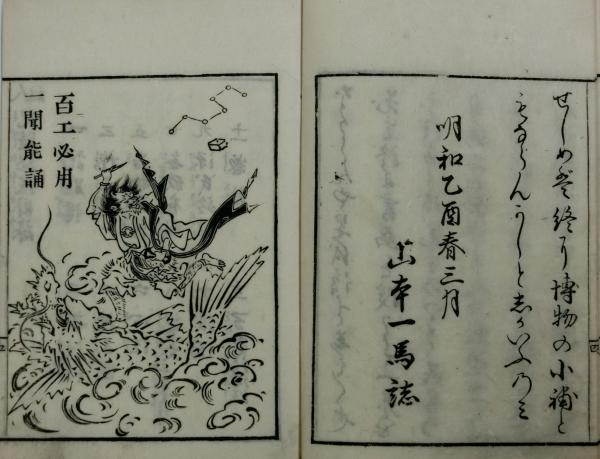 せしめは終り博物の小補と
もならんかしと志かいふのミ
明和乙酉春三月
山本一馬誌
百工必用
一聞能誦